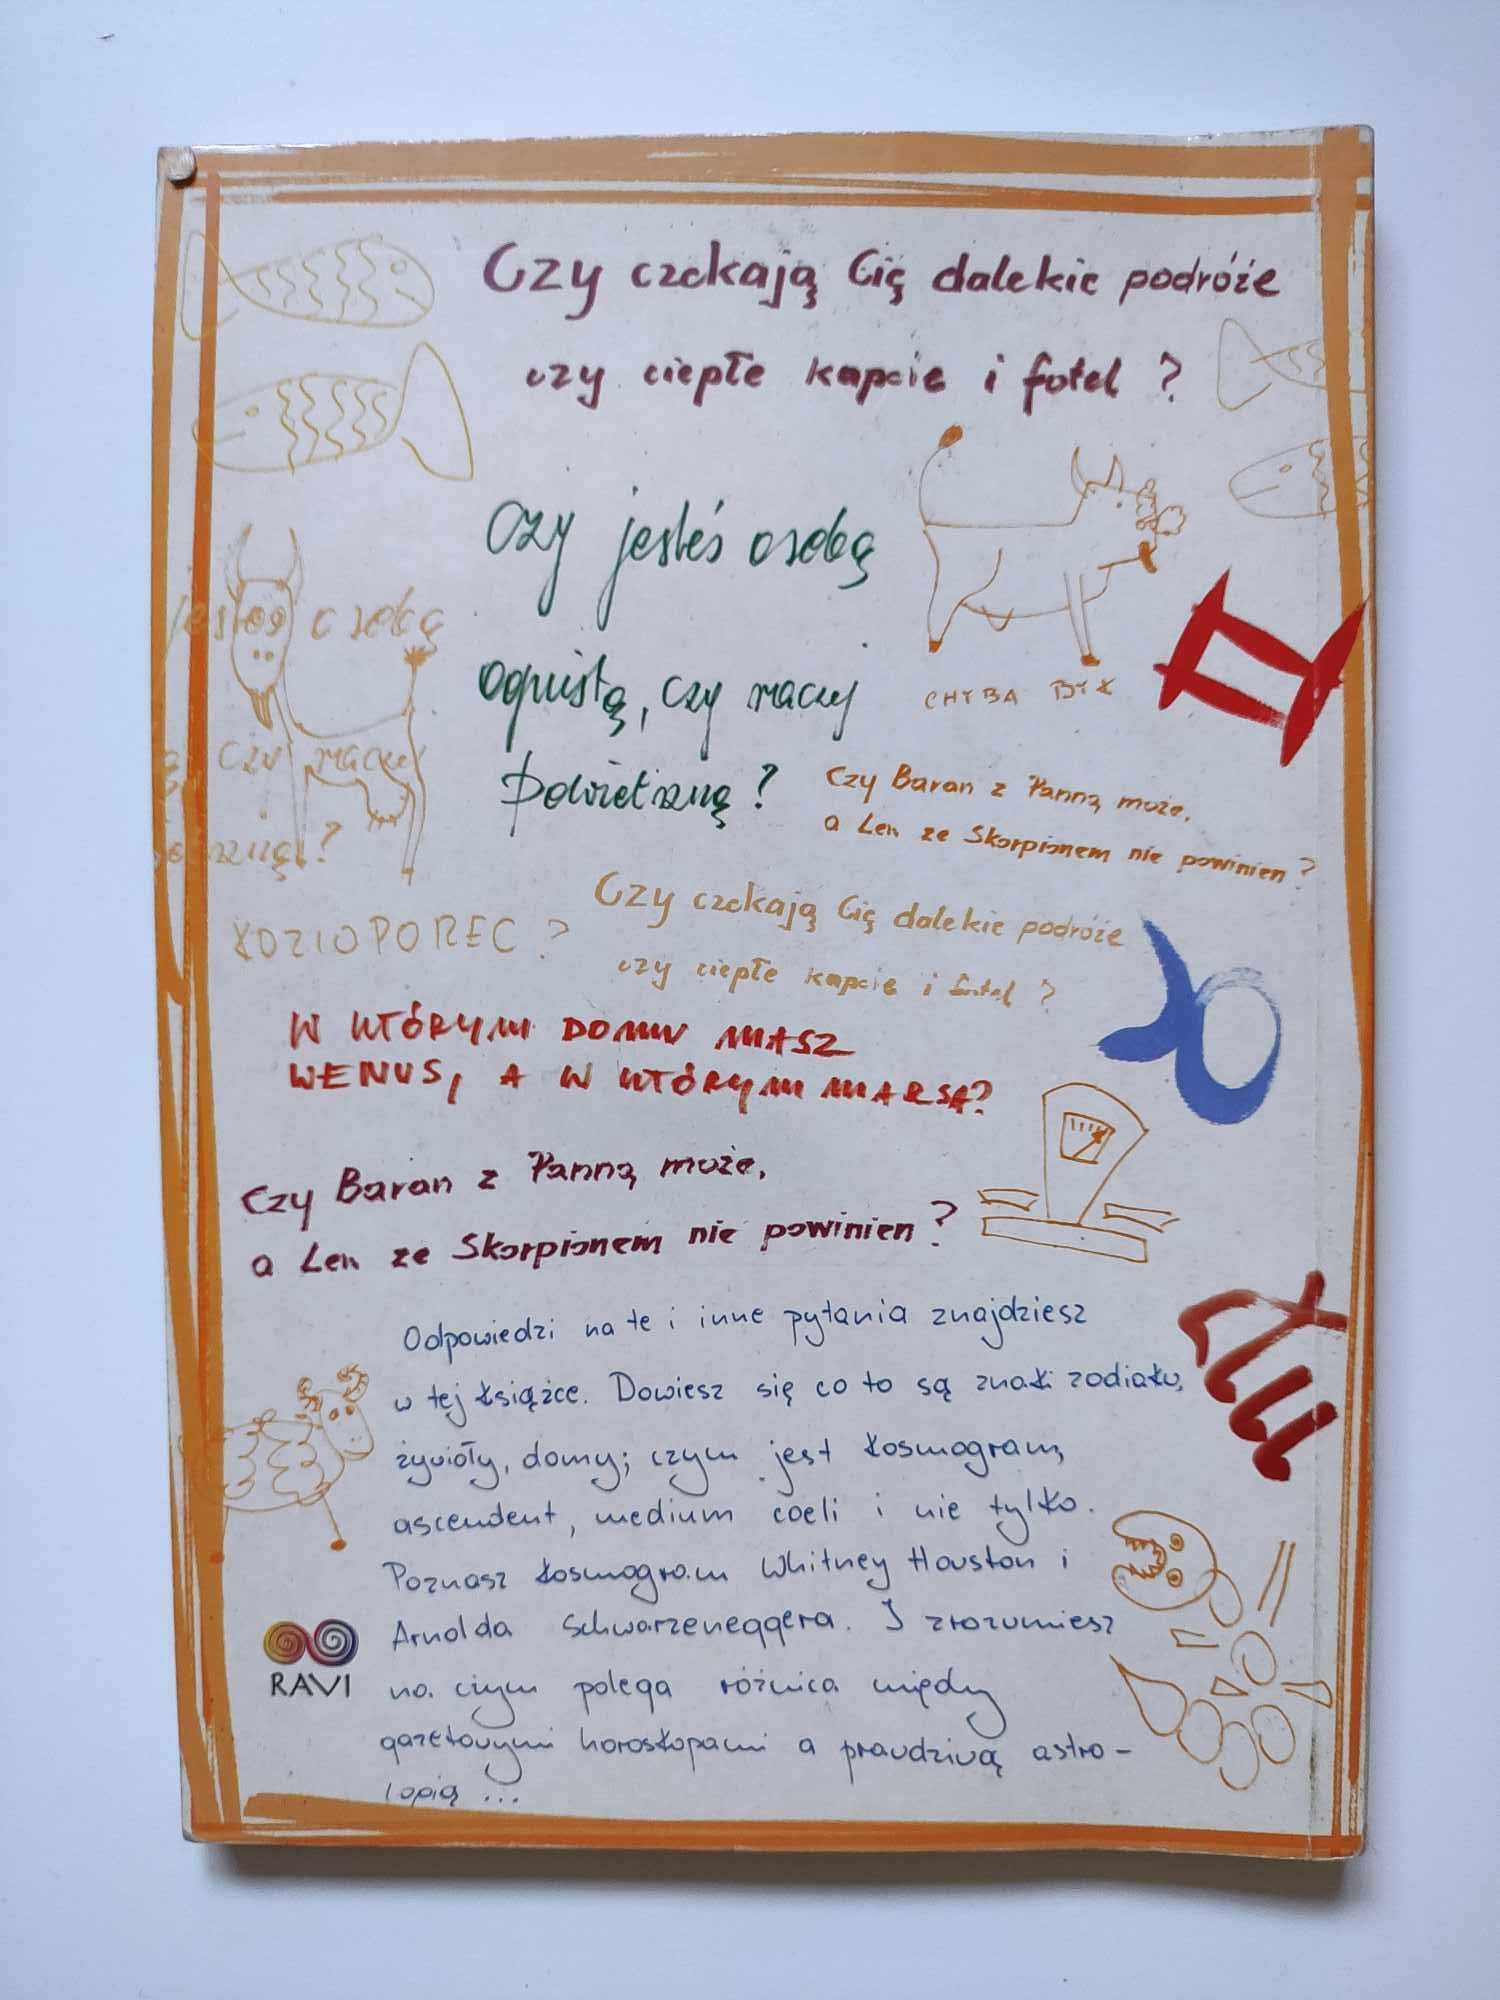 Czy czekają Cię dalekie podróże
czy ciepłe kapcie i fotel ?
Czy jesteś osobą
ognistą, czy raczej
powietrzną ?
jesteś osobą
czy raczej
CHYBA BYK
Czy Baran z Panną może,
a Lew ze Skorpionem nie powinien ?
KOZIOPOREC ?
Czy czekają Cię dalekie podróże
czy ciepłe kapcie i fotel ?
W KTÓRYM DOMU MASZ
WENUS, A W KTÓRYM MARSA?
Czy Baran z Panną może,
a Lew ze Skorpionem nie powinien ?
Odpowiedzi na te i inne pytania znajdziesz
w tej książce. Dowiesz się co to są znaki zodiaku,
żywioły, domy; czym jest kosmogram,
ascendent, medium coeli i nie tylko.
Poznasz kosmogram Whitney Houston i
Arnolda Schwarzeneggera. I zrozumiesz
na czym polega różnica między
gazetowymi horoskopami a prawdziwą astro-
logią ...
RAVI